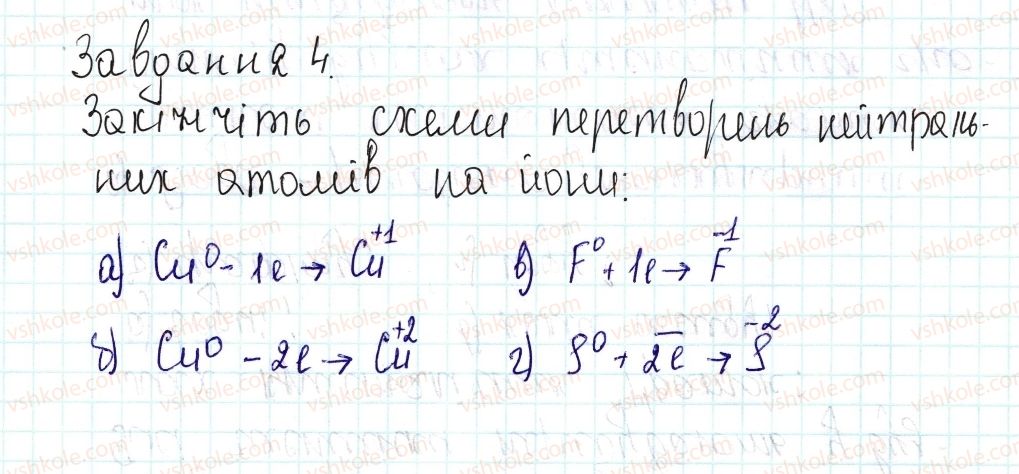 Завдання 4.
Закінчіть схеми перетворень нейтраль-
них атомів на йони:
а) Cu⁰ - 1e → Cu⁺¹ в) F⁰ + 1e → F⁻¹
б) Cu⁰ - 2e → Cu⁺² г) S⁰ + 2e̅ → S⁻²